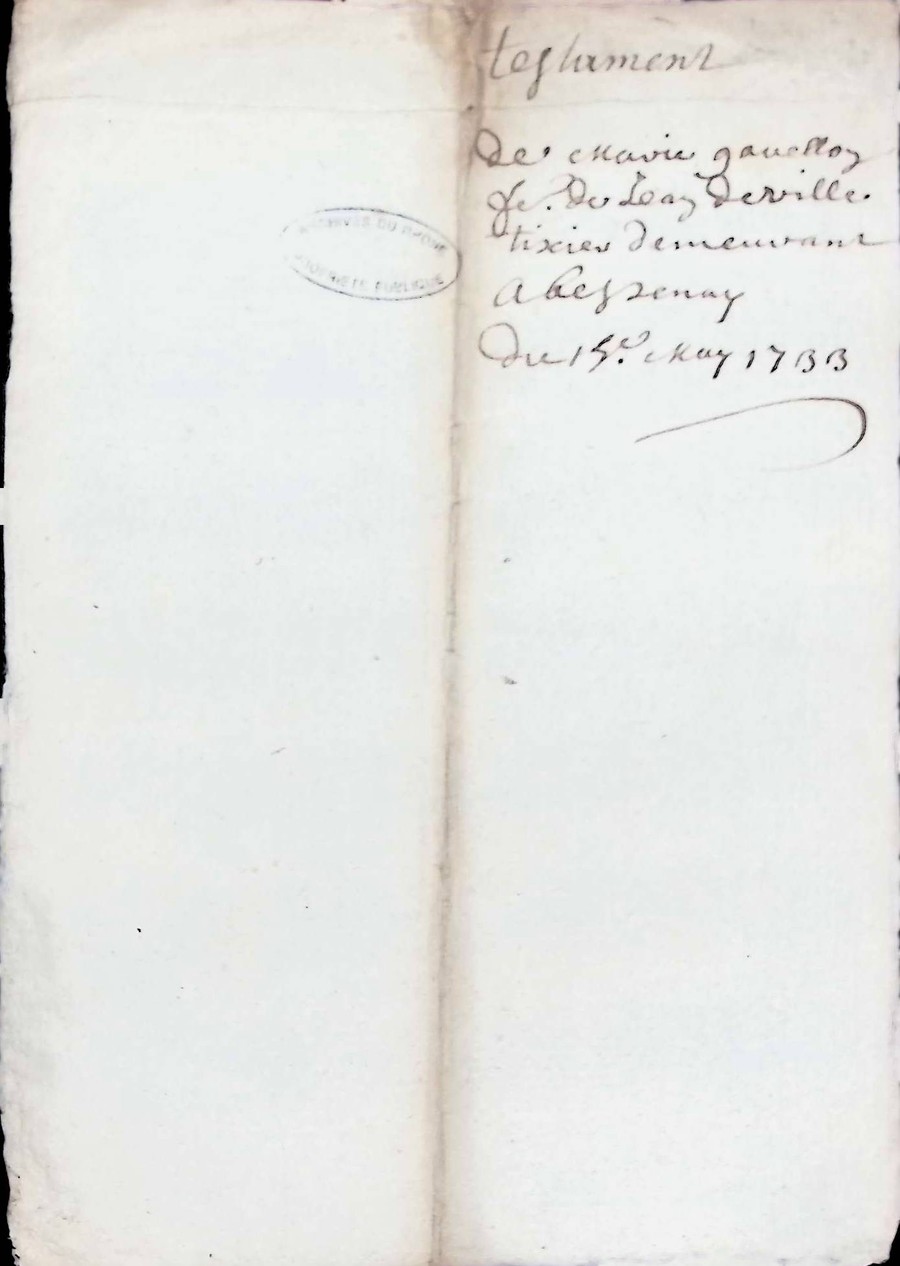 testament
de marie gauellon
fe. de Jean Deville
tixier demeurant
a bessenay
du 15e. may 1733
ARCHIVES DU RHONE
PROPRIETE PUBLIQUE